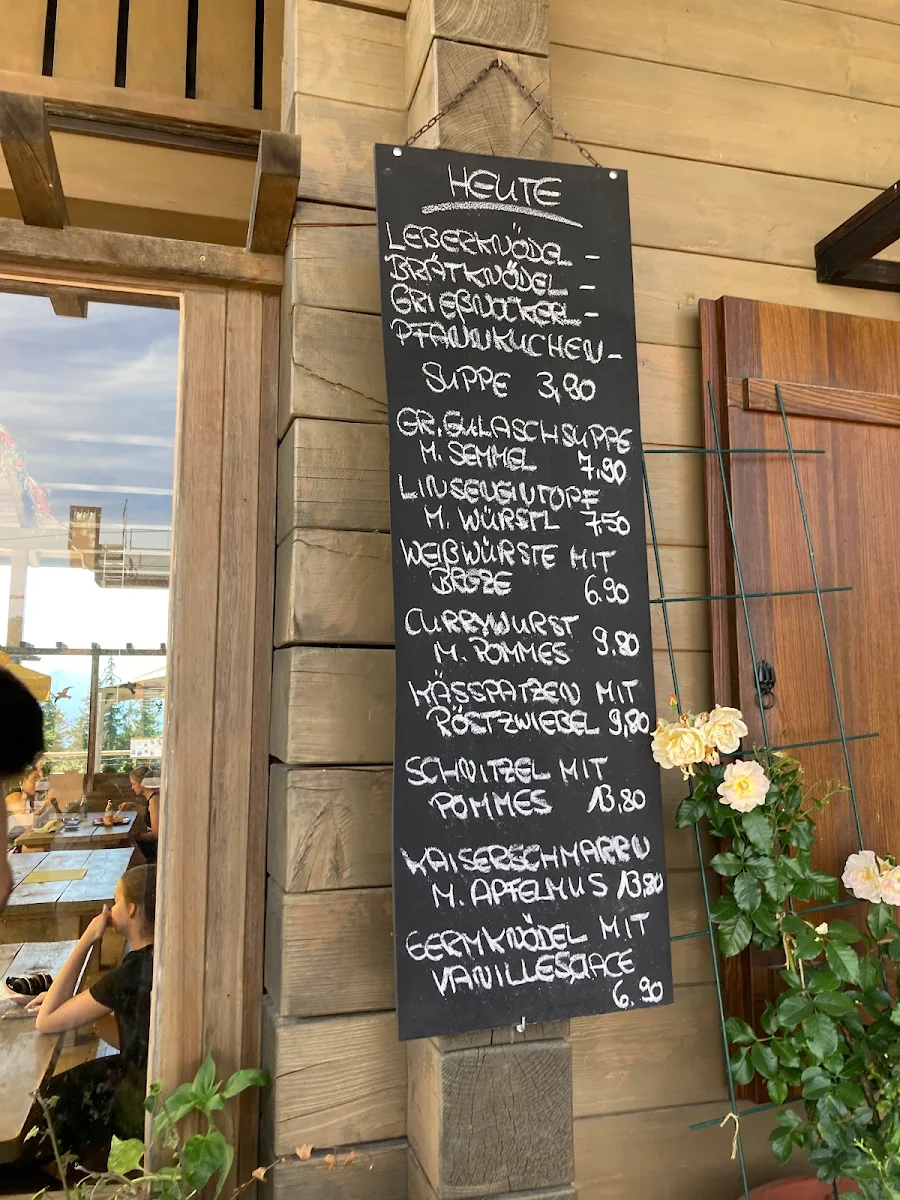 HEUTE
LEBERKNÖDEL -
BRÄTKNÖDEL -
GRIEßNOCKERL -
PFANNKUCHEN -
SUPPE 3,90
GR. GULASCHSUPPE
M. SEMMEL 7,90
LINSENEINTOPF
M. WÜRSTL 7,50
WEIßWÜRSTE MIT
BREZE 6.90
CURRYWURST
M. POMMES 9,80
KÄSSPATZEN MIT
RÖSTZWIEBEL 9,80
SCHNITZEL MIT
POMMES 13,80
KAISERSCHMARRN
M. APFELMUS 13,80
GERMKNÖDEL MIT
VANILLESOßE
6,90